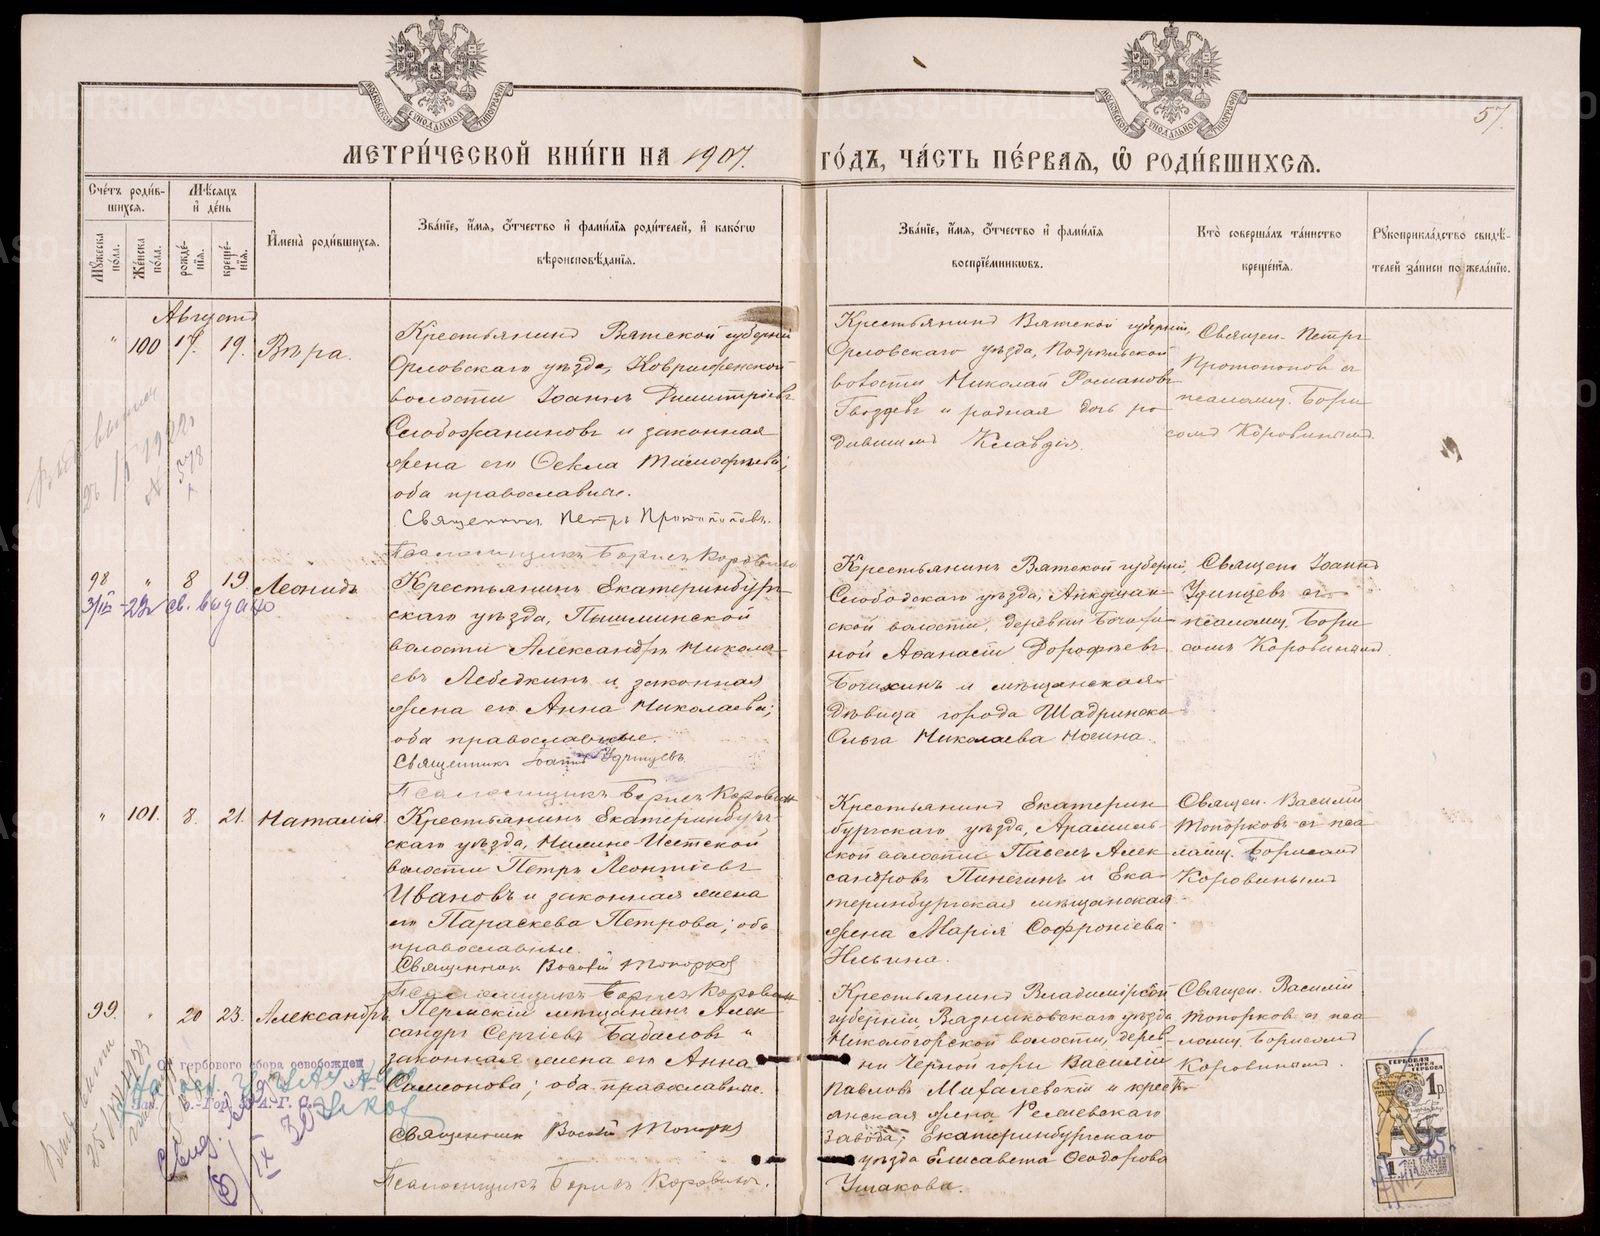 57.
МЕТРИ́ЧЕСКОЙ КНИ́ГИ НА 1907. ГО́ДЪ, ЧА́СТЬ ПЕ́РВАѦ, Ѡ҆ РОДИ́ВШИХСѦ.
Сче́тъ роди́вшихсѧ.
Мꙋ́жеска по́ла.
Же́нска по́ла.
Мѣ́сѧцъ и҆ де́нь
рожде́нїѧ.
креще́нїѧ.
И҆мена̀ роди́вшихсѧ.
Зва́нїе, и҆́мѧ, ѻ҆́тчество и҆ фами́лїѧ роди́телей, и҆ како́гѡ
вѣроисповѣ́данїѧ.
Зва́нїе, и҆́мѧ, ѻ҆́тчество и҆ фами́лїѧ
воспрїе́мникѡвъ.
Кто̀ соверша́лъ та́инство
креще́нїѧ.
Рꙋкоприкла́дство свидѣ́-
телей за́писи по жела́нїю.
Августъ
" 100 17. 19. Вѣра.
Крестьянинъ Вятской губерніи
Орловскаго уѣзда,
волости Іоаннъ Димитріевъ
Слобожаниновъ и законная
жена его Ѳекла Тимофѣева;
оба православные.
Священникъ Петръ Протопоповъ.
Псаломщикъ Борисъ Коровинъ
Крестьянинъ Вятской губерніи,
Орловскаго уѣзда, Подрельской
волости Николай Романовъ
Гвоздевъ и родная дочь ро
дившихъ Клавдія.
Священ. Петръ
Протопоповъ съ
псаломщ. Бори
сомъ Коровинымъ.
98 " 8 19 Леонидъ
3/IX-23г св. выдано
Крестьянинъ Екатеринбург-
скаго уѣзда, Пышминской
волости Александръ Никола-
евъ Лебедкинъ и законная
жена его Анна Николаева;
оба православные.
Священникъ Іоаннъ Удинцевъ.
Псаломщикъ Борисъ Коровинъ
Крестьянинъ Вятской губерніи,
Слободскаго уѣзда,
ской волости, деревни
ной Аѳанасій Дорофѣевъ
и мѣщанская
дѣвица города Шадринска
Ольга Николаева
Священ. Іоаннъ
Удинцевъ съ
псаломщ. Бори
сомъ Коровинымъ
" 101. 8. 21. Наталія.
Крестьянинъ Екатеринбург-
скаго уѣзда, Нижне-Исетской
волости Петръ Леонтіевъ
Ивановъ и законная жена
его Параскева Петрова; оба
православные.
Священник Василій Топорков
Псаломщикъ Борисъ Коровинъ
Крестьянинъ Екатерин
бургскаго уѣзда, Арамиль-
ской волости Павелъ Алек
сандровъ Пинегинъ и Ека
теринбургская мѣщанская
жена Марія Софроніева
Ильина.
Священ. Василій
Топорковъ съ пса
ломщ. Борисомъ
Коровинымъ
99. " 20 23. Александръ
Пермскій мѣщанинъ Алек-
сандръ Сергіевъ Бабаловъ и
законная жена его Анна
Самсонова; оба православные.
Священник Василій Топорков
Псаломщикъ Борисъ Коровинъ.
Крестьянинъ Владимірской
губерніи Вязниковскаго уѣзда
Никологорской волости, дерев-
ни Черной горы Василій
Павловъ Михалевскій и крестъ-
янская жена Режевскаго
завода, Екатеринбургскаго
уѣзда Елисавета Ѳеодорова
Ушакова.
Священ. Василій
Топорковъ съ пса
ломщ. Борисомъ
Коровинымъ.
От гербового сбора освобожден
ГЕРБОВАЯ МАРКА
1 р.